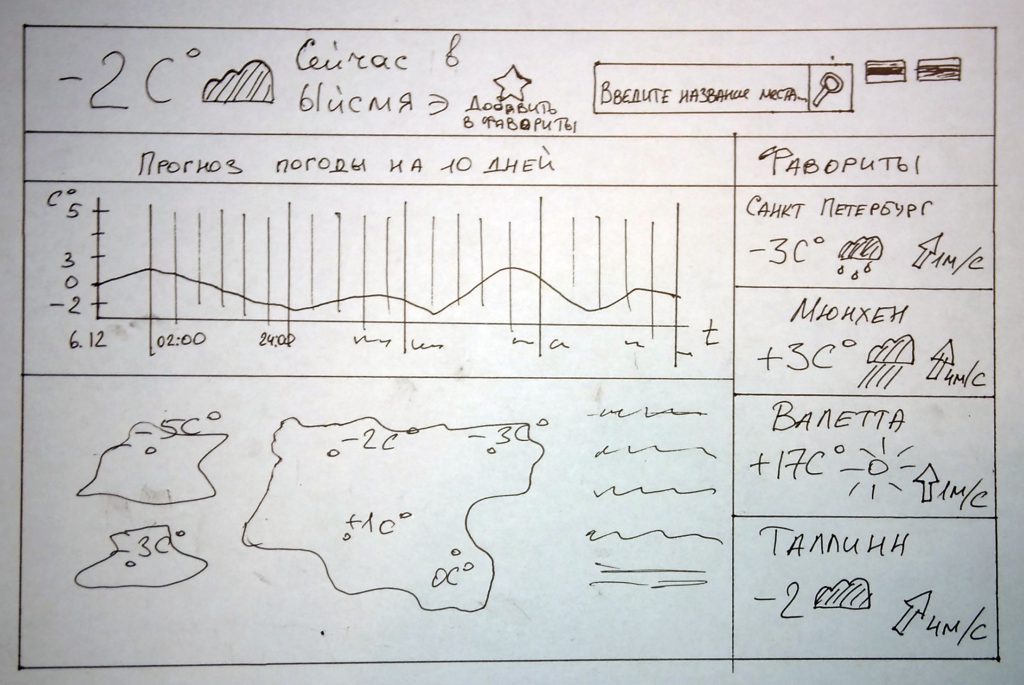 -2 C°
Сейчас в
Ыйсмяэ
Добавить
в фавориты
Введите название места...
Прогноз погоды на 10 дней
C°
5
3
0
-2
6.12
02:00
24:00
t
-5C°
-3C°
-2C°
-3C°
+1C°
0C°
Фавориты
Санкт Петербург
-3C°
1м/с
Мюнхен
+3C°
4м/с
Валетта
+17C°
1м/с
Таллинн
-2
4м/с